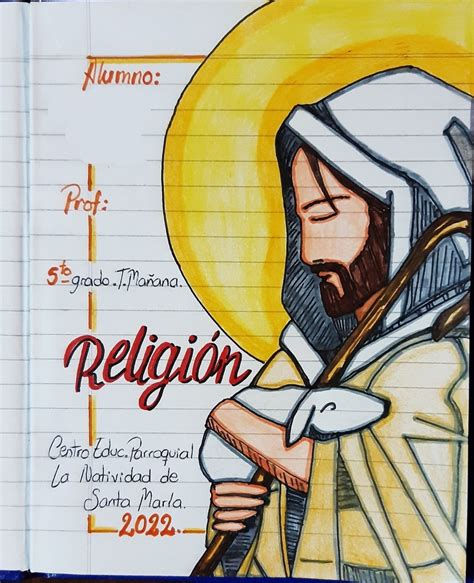 Alumno:
Prof:
5to grado. T. Mañana.
Religión
Centro Educ. Parroquial
La Natividad de
Santa María.
2022.